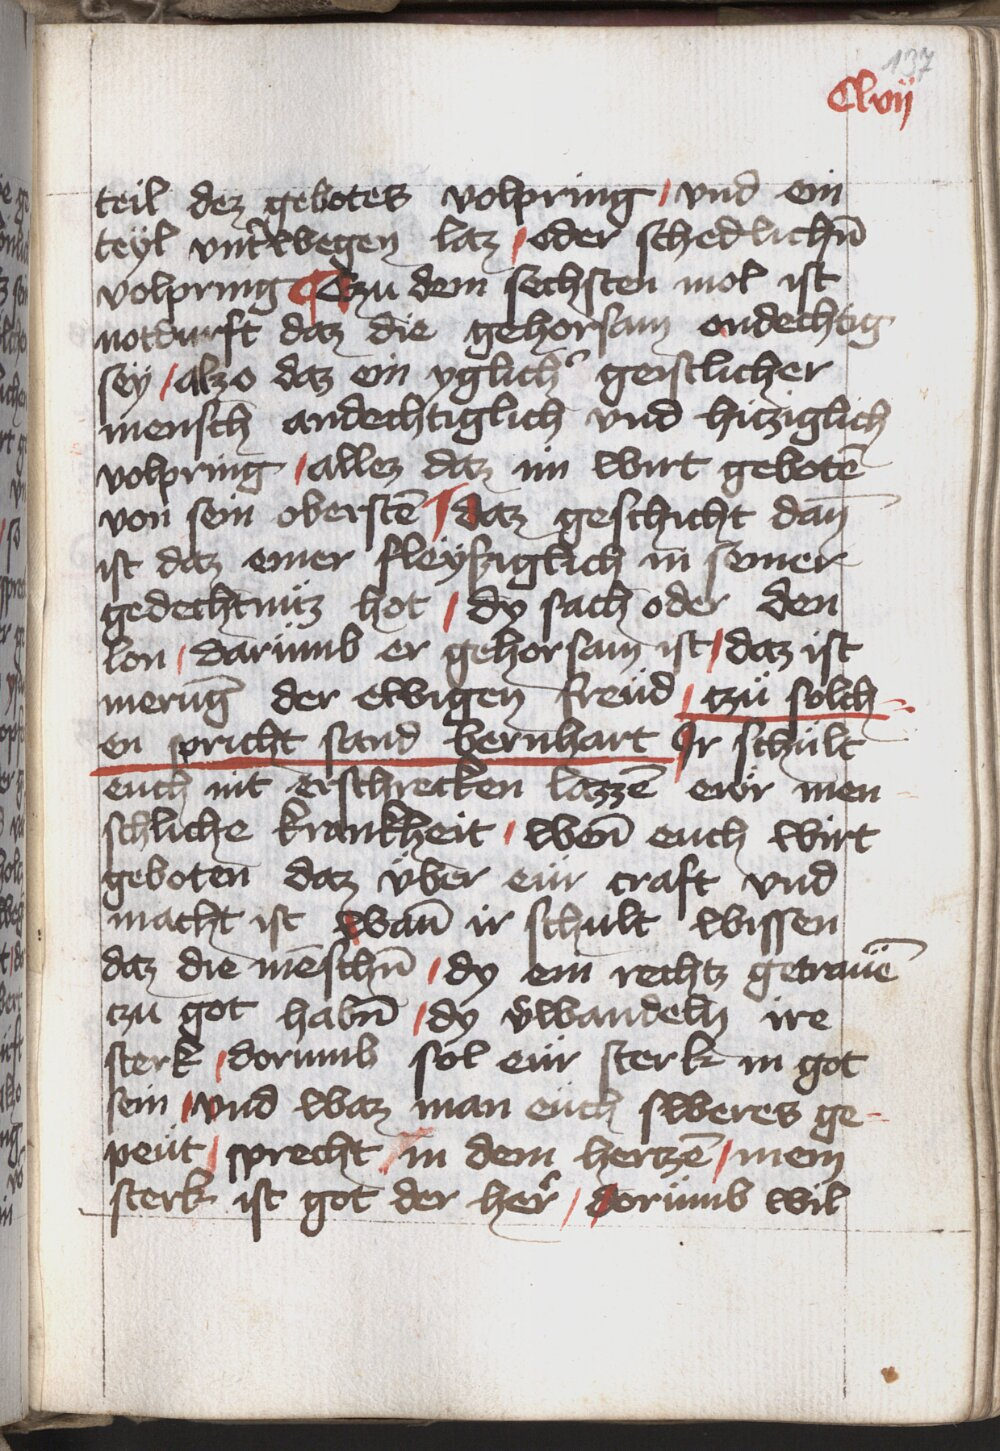 137
Clvij
teil dez gebotes volpring / vnd ein
teyl vnt͛wegen laz / oder schedlichn̄
volpring Czu dem sechsten mol ist
notdurft daz die gehorsam andechtig
sey / alzo daz ein yglich͛ geistlicher
mensch andechtiglich vnd hitziglich
volpring / allez daz im wirt gebotē
von sein oberstē / daz geschicht dan̄
ist daz einer fleyssiglich in seiner
gedechtnüz hot / dy sach oder den
lon / darümb er gehorsam ist / daz ist
merūg der ewigen freüd / czü solch-
en spricht sand bernhart Jr schült
euch nit erschrecken lazzē ewr men
schliche krankheit / wen̄ euch wirt
geboten daz über eür craft vnd
macht ist wan̄ ir schült wissen
daz die mēschn̄ / dy ein rechtz getrauē
czu got habn̄ / dy v̄wandeln ire
sterk / dorumb sol eür sterk in got
sein / vnd waz man euch sweres ge-
peüt / sprecht / in dem hertzē / mein
sterk ist got der her͛ / dorümb wil